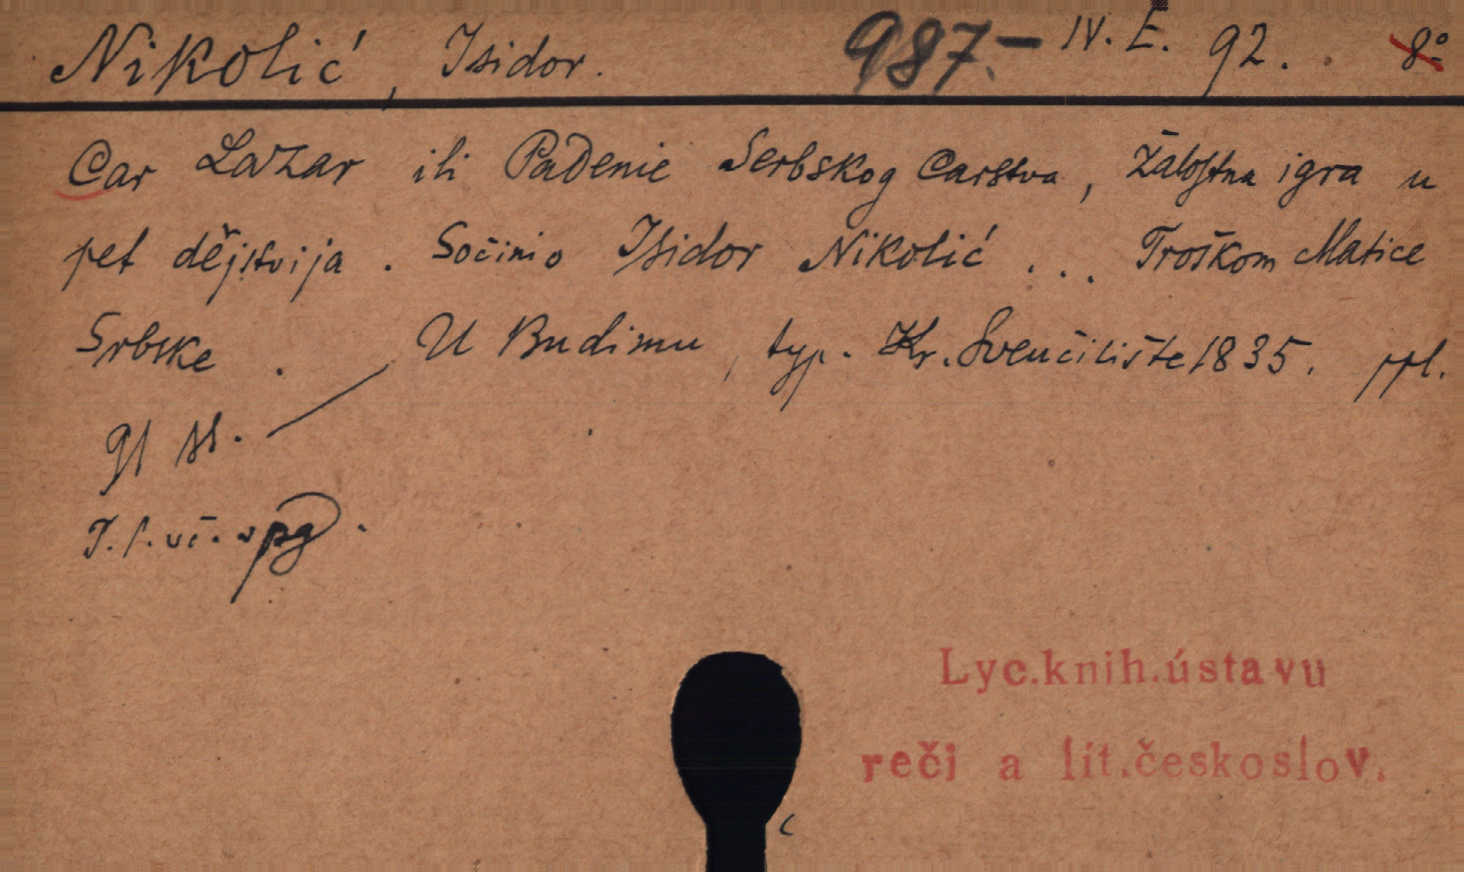 Nikolić, Isidor. 987.- IV. E. 92. 8º
Car Lazar ili Padenie Serbskog Carstva, Žalostna igra u
pet dějstvija. Sočinio Isidor Nikolić ... Troškom Matice
Srbske. U Budimu, typ. Kr. Sveučilište 1835. ppl.
91 st.
Lyc.knih.ústavu
reči a lit.českoslov.